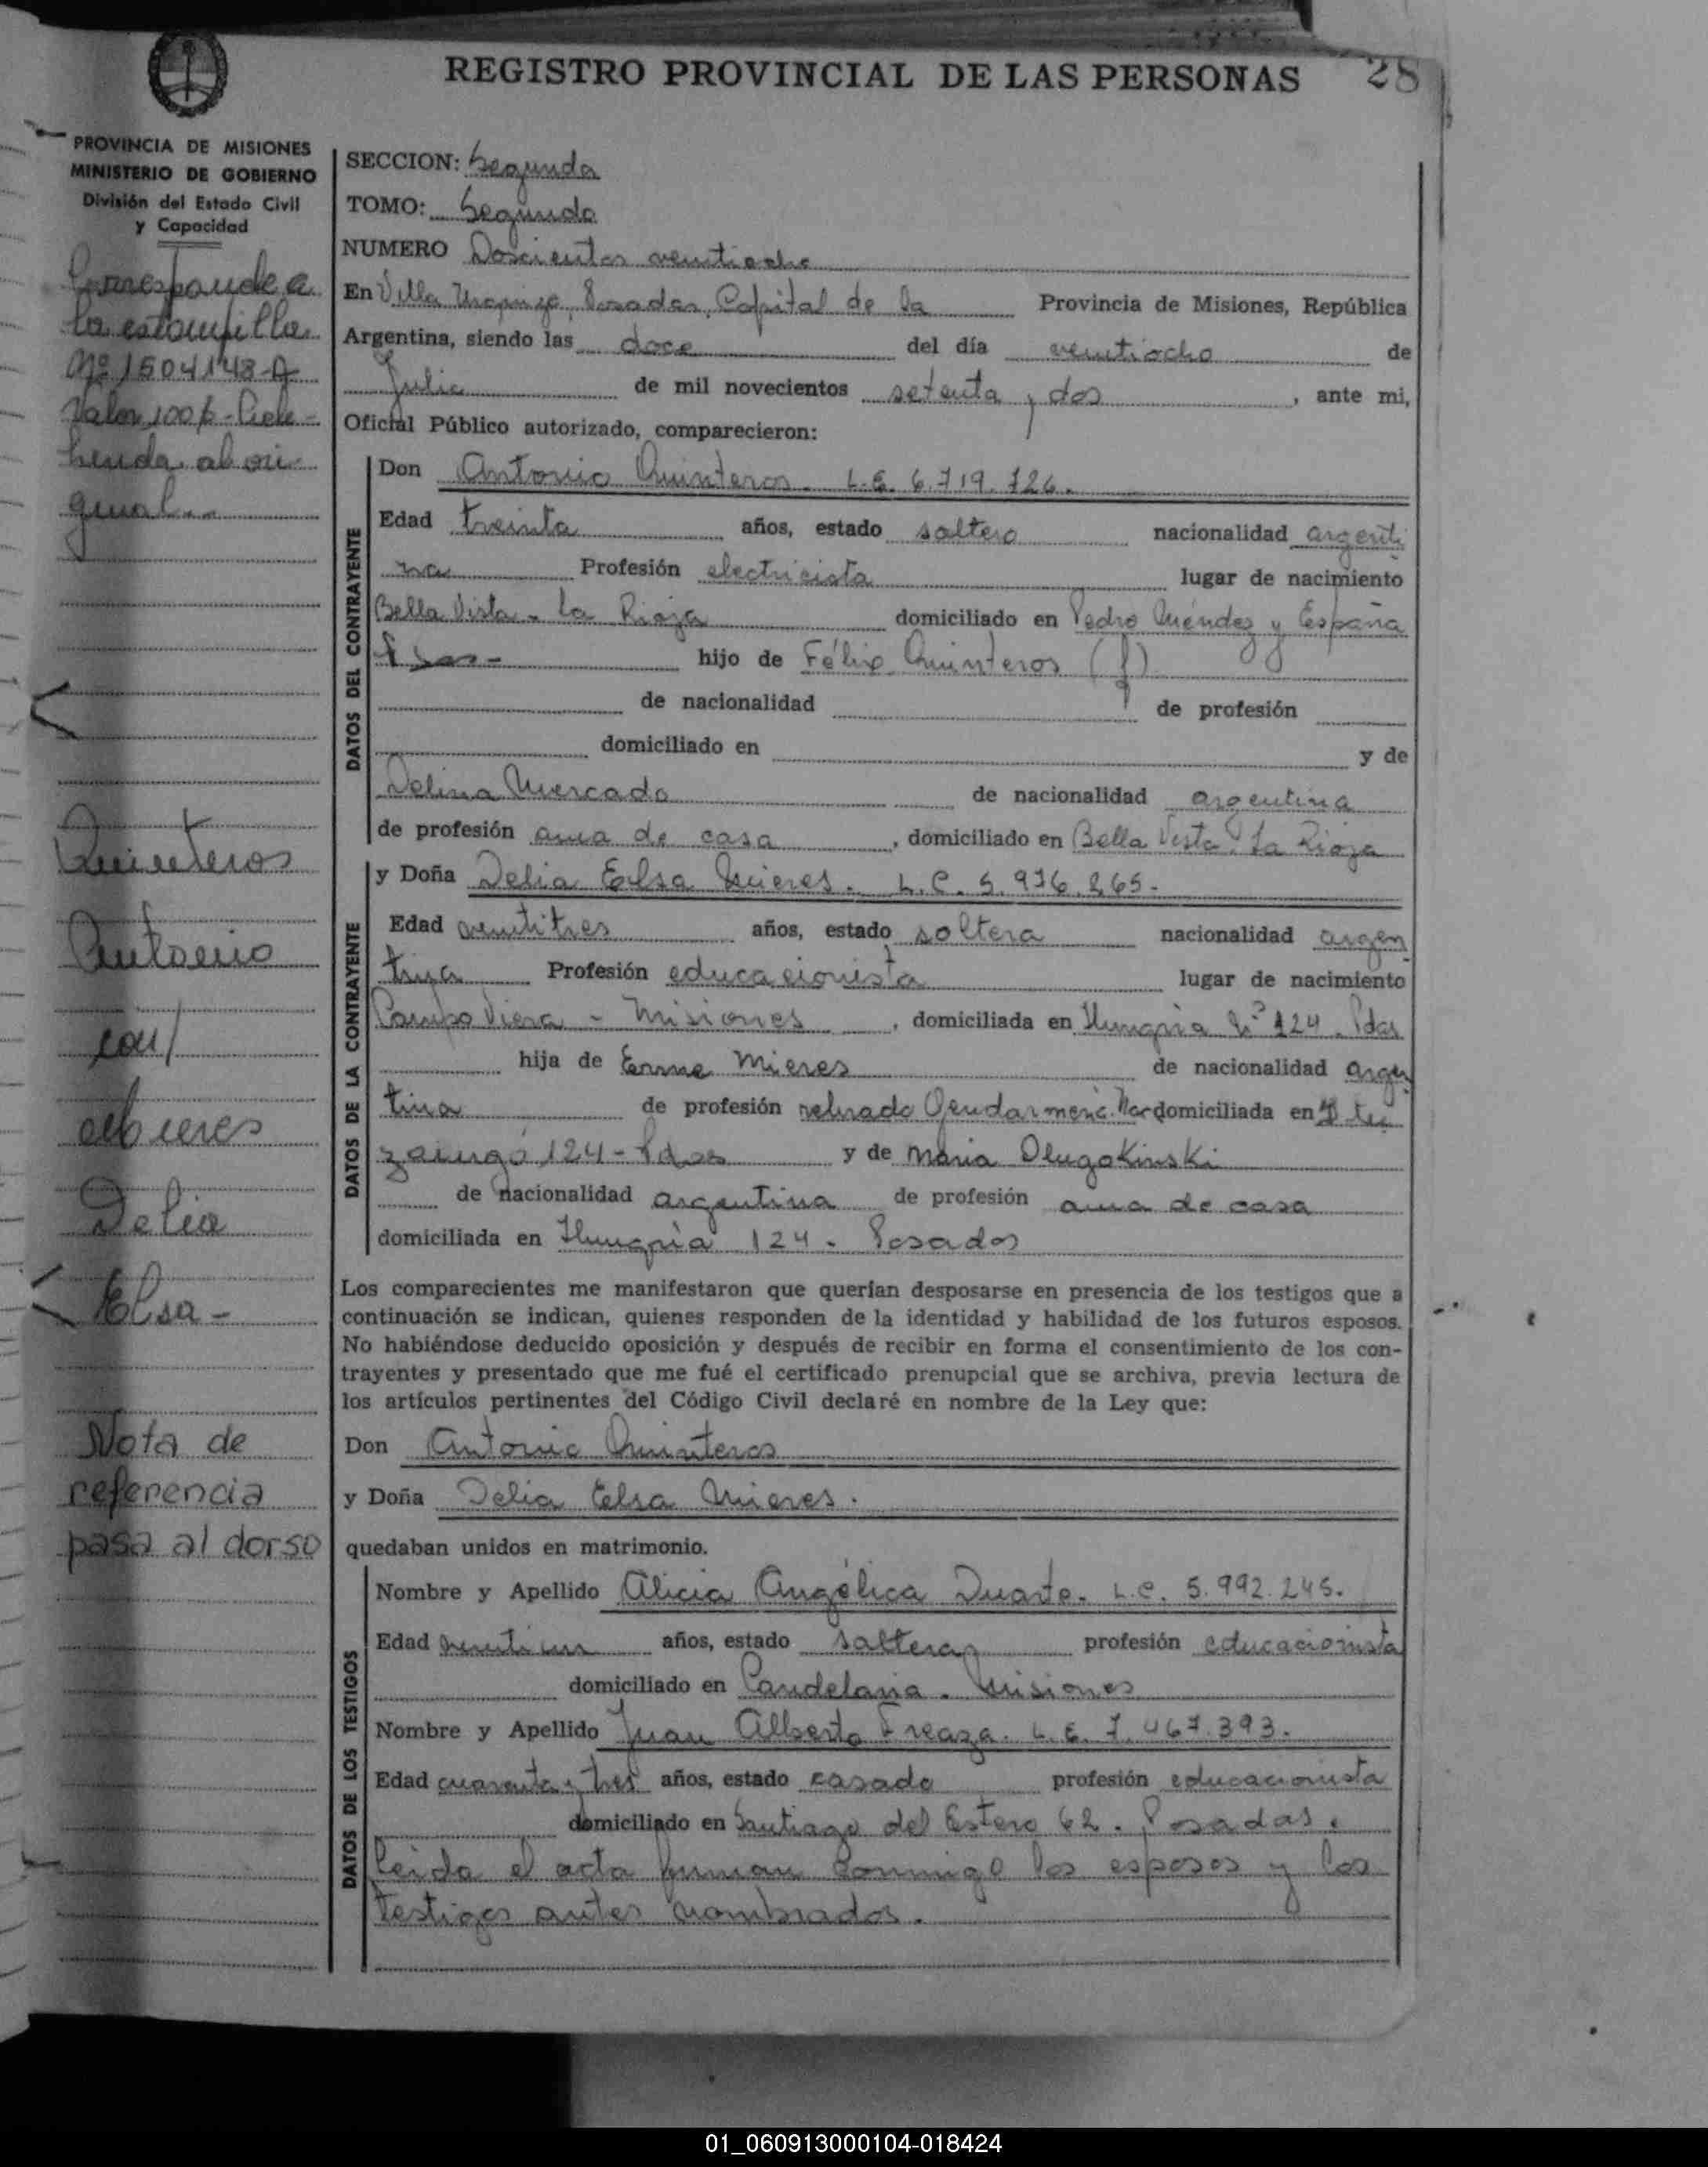 REGISTRO PROVINCIAL DE LAS PERSONAS 28
PROVINCIA DE MISIONES
MINISTERIO DE GOBIERNO
División del Estado Civil
y Capacidad
Corresponde a
la estampilla
Nº 1504148-A
Valor 100 $ - Ciele-
henda al ori
ginal..
Quinteros
Antonio
con/
Mieres
Delia
Elsa -
Nota de
referencia
pasa al dorso
SECCION: Segunda
TOMO: Segundo
NUMERO Doscientos veintiocho
En Villa Urquiza, Posadas, Capital de la Provincia de Misiones, República
Argentina, siendo las doce del día veintiocho de
Julio de mil novecientos setenta y dos, ante mi,
Oficial Público autorizado, comparecieron:
DATOS DEL CONTRAYENTE
Don Antonio Quinteros. L.E. 6.719.726.
Edad treinta años, estado soltero nacionalidad argenti
na Profesión electricista lugar de nacimiento
Bella Vista - La Rioja domiciliado en Pedro Méndez y España
Psdas- hijo de Félix Quinteros (f)
de nacionalidad de profesión
domiciliado en y de
Delina Mercado de nacionalidad argentina
de profesión ama de casa, domiciliado en Bella Vista. La Rioja
DATOS DE LA CONTRAYENTE
y Doña Delia Elsa Mieres. L.C. 5.936.865.
Edad veintitres años, estado soltera nacionalidad argen
tina Profesión educacionista lugar de nacimiento
Campo Viera - Misiones, domiciliada en Hungría Nº 124. Pdas
hija de Erme Mieres de nacionalidad argen
tina de profesión retirado Gendarmería Nac domiciliada en I tu
zaingó 124 - Pdas y de Maria Dlugokinski
de nacionalidad argentina de profesión ama de casa
domiciliada en Hungría 124 - Posadas
Los comparecientes me manifestaron que querían desposarse en presencia de los testigos que a
continuación se indican, quienes responden de la identidad y habilidad de los futuros esposos.
No habiéndose deducido oposición y después de recibir en forma el consentimiento de los con-
trayentes y presentado que me fué el certificado prenupcial que se archiva, previa lectura de
los artículos pertinentes del Código Civil declaré en nombre de la Ley que:
Don Antonio Quinteros
y Doña Delia Elsa Mieres.
quedaban unidos en matrimonio.
DATOS DE LOS TESTIGOS
Nombre y Apellido Alicia Angélica Duarte. L.C. 5.992.245.
Edad veintiun años, estado soltera profesión educacionista
domiciliado en Candelaria. Misiones
Nombre y Apellido Juan Alberto Freaza. L.E. 7.467.393.
Edad cuarenta y tres años, estado casado profesión educacionista
domiciliado en Santiago del Estero 62. Posadas.
Leida el acta firman conmigo los esposos y los
testigos antes nombrados.
01_060913000104-018424